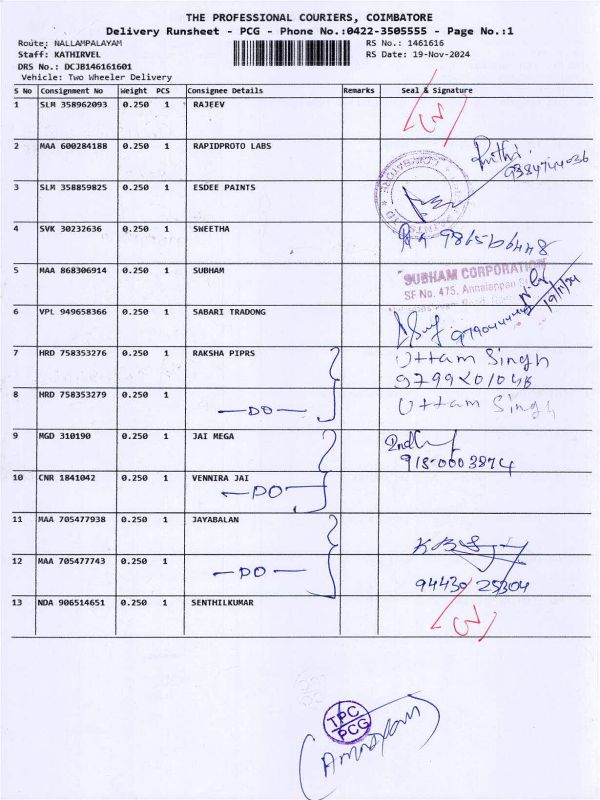 THE PROFESSIONAL COURIERS, COIMBATORE
Delivery Runsheet - PCG - Phone No.:0422-3505555 - Page No.:1
Route: NALLAMPALAYAM RS No.: 1461616
Staff: KATHIRVEL RS Date: 19-Nov-2024
DRS No.: DCJB146161601
Vehicle: Two Wheeler Delivery
S No Consignment No Weight PCS Consignee Details Remarks Seal & Signature
1 SLM 358962093 0.250 1 RAJEEV
2 MAA 600284188 0.250 1 RAPIDPROTO LABS
9384744036
3 SLM 358859825 0.250 1 ESDEE PAINTS
4 SVK 30232636 0.250 1 SWEETHA
5 MAA 868306914 0.250 1 SUBHAM SUBHAM CORPORATION
SF No. 475, Annaiappan
19/11/24
6 VPL 949658366 0.250 1 SABARI TRADONG
7 HRD 758353276 0.250 1 RAKSHA PIPRS Uttam Singh
8 HRD 758353279 0.250 1 —DO— Uttam Singh
9 MGD 310190 0.250 1 JAI MEGA
10 CNR 1841042 0.250 1 VENNIRA JAI
—DO—
11 MAA 705477938 0.250 1 JAYABALAN
12 MAA 705477743 0.250 1 —DO—
94430 25304
13 NDA 906514651 0.250 1 SENTHILKUMAR
TPC
PCG